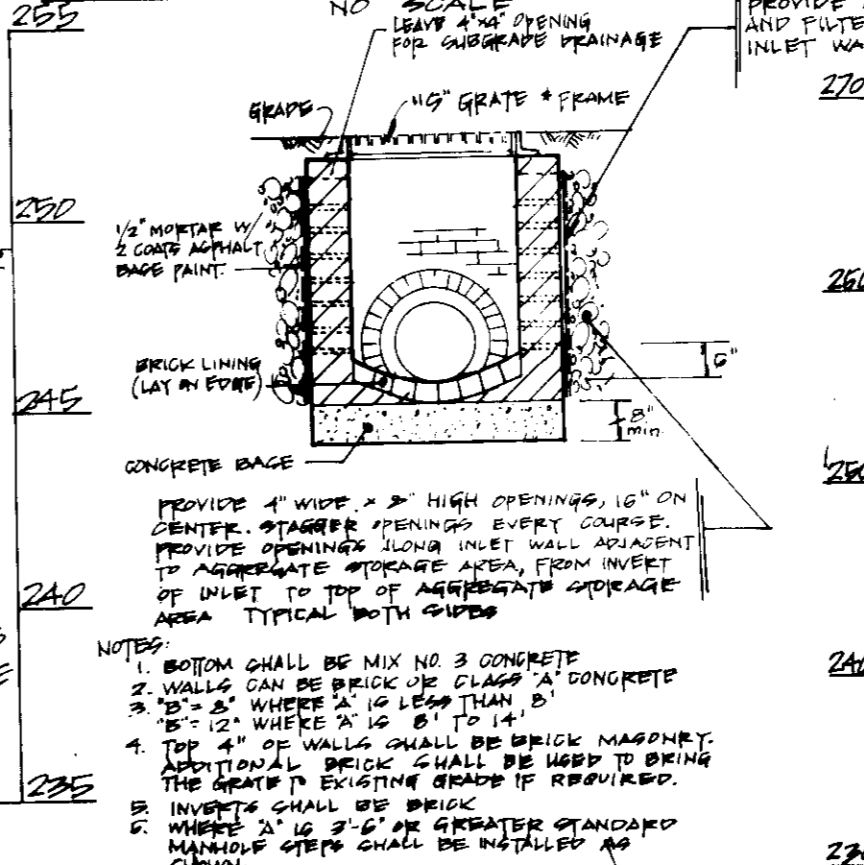 255
NO SCALE
LEAVE 4"x4" OPENING
FOR SUBGRADE DRAINAGE
PROVIDE
AND FILTE
INLET WA
270
GRADE
"S" GRATE & FRAME
250
1/2" MORTAR W/
2 COATS ASPHALT
BASE PAINT.
260
BRICK LINING
(LAY ON EDGE)
6"
245
8"
min.
CONCRETE BASE
250
PROVIDE 4" WIDE x 8" HIGH OPENINGS, 16" ON
CENTER. STAGGER OPENINGS EVERY COURSE.
PROVIDE OPENINGS ALONG INLET WALL ADJACENT
TO AGGREGATE STORAGE AREA, FROM INVERT
OF INLET TO TOP OF AGGREGATE STORAGE
AREA TYPICAL BOTH SIDES
240
NOTES:
1. BOTTOM SHALL BE MIX NO. 3 CONCRETE
2. WALLS CAN BE BRICK OR CLASS "A" CONCRETE
3. "B" = 8" WHERE "A" IS LESS THAN 8'
"B" = 12" WHERE "A" IS 8' TO 14'
240
4. TOP 4" OF WALLS SHALL BE BRICK MASONRY.
ADDITIONAL BRICK SHALL BE USED TO BRING
THE GRATE TO EXISTING GRADE IF REQUIRED.
235
5. INVERTS SHALL BE BRICK
6. WHERE "A" IS 3'-6" OR GREATER STANDARD
MANHOLE STEPS SHALL BE INSTALLED AS
SHOWN